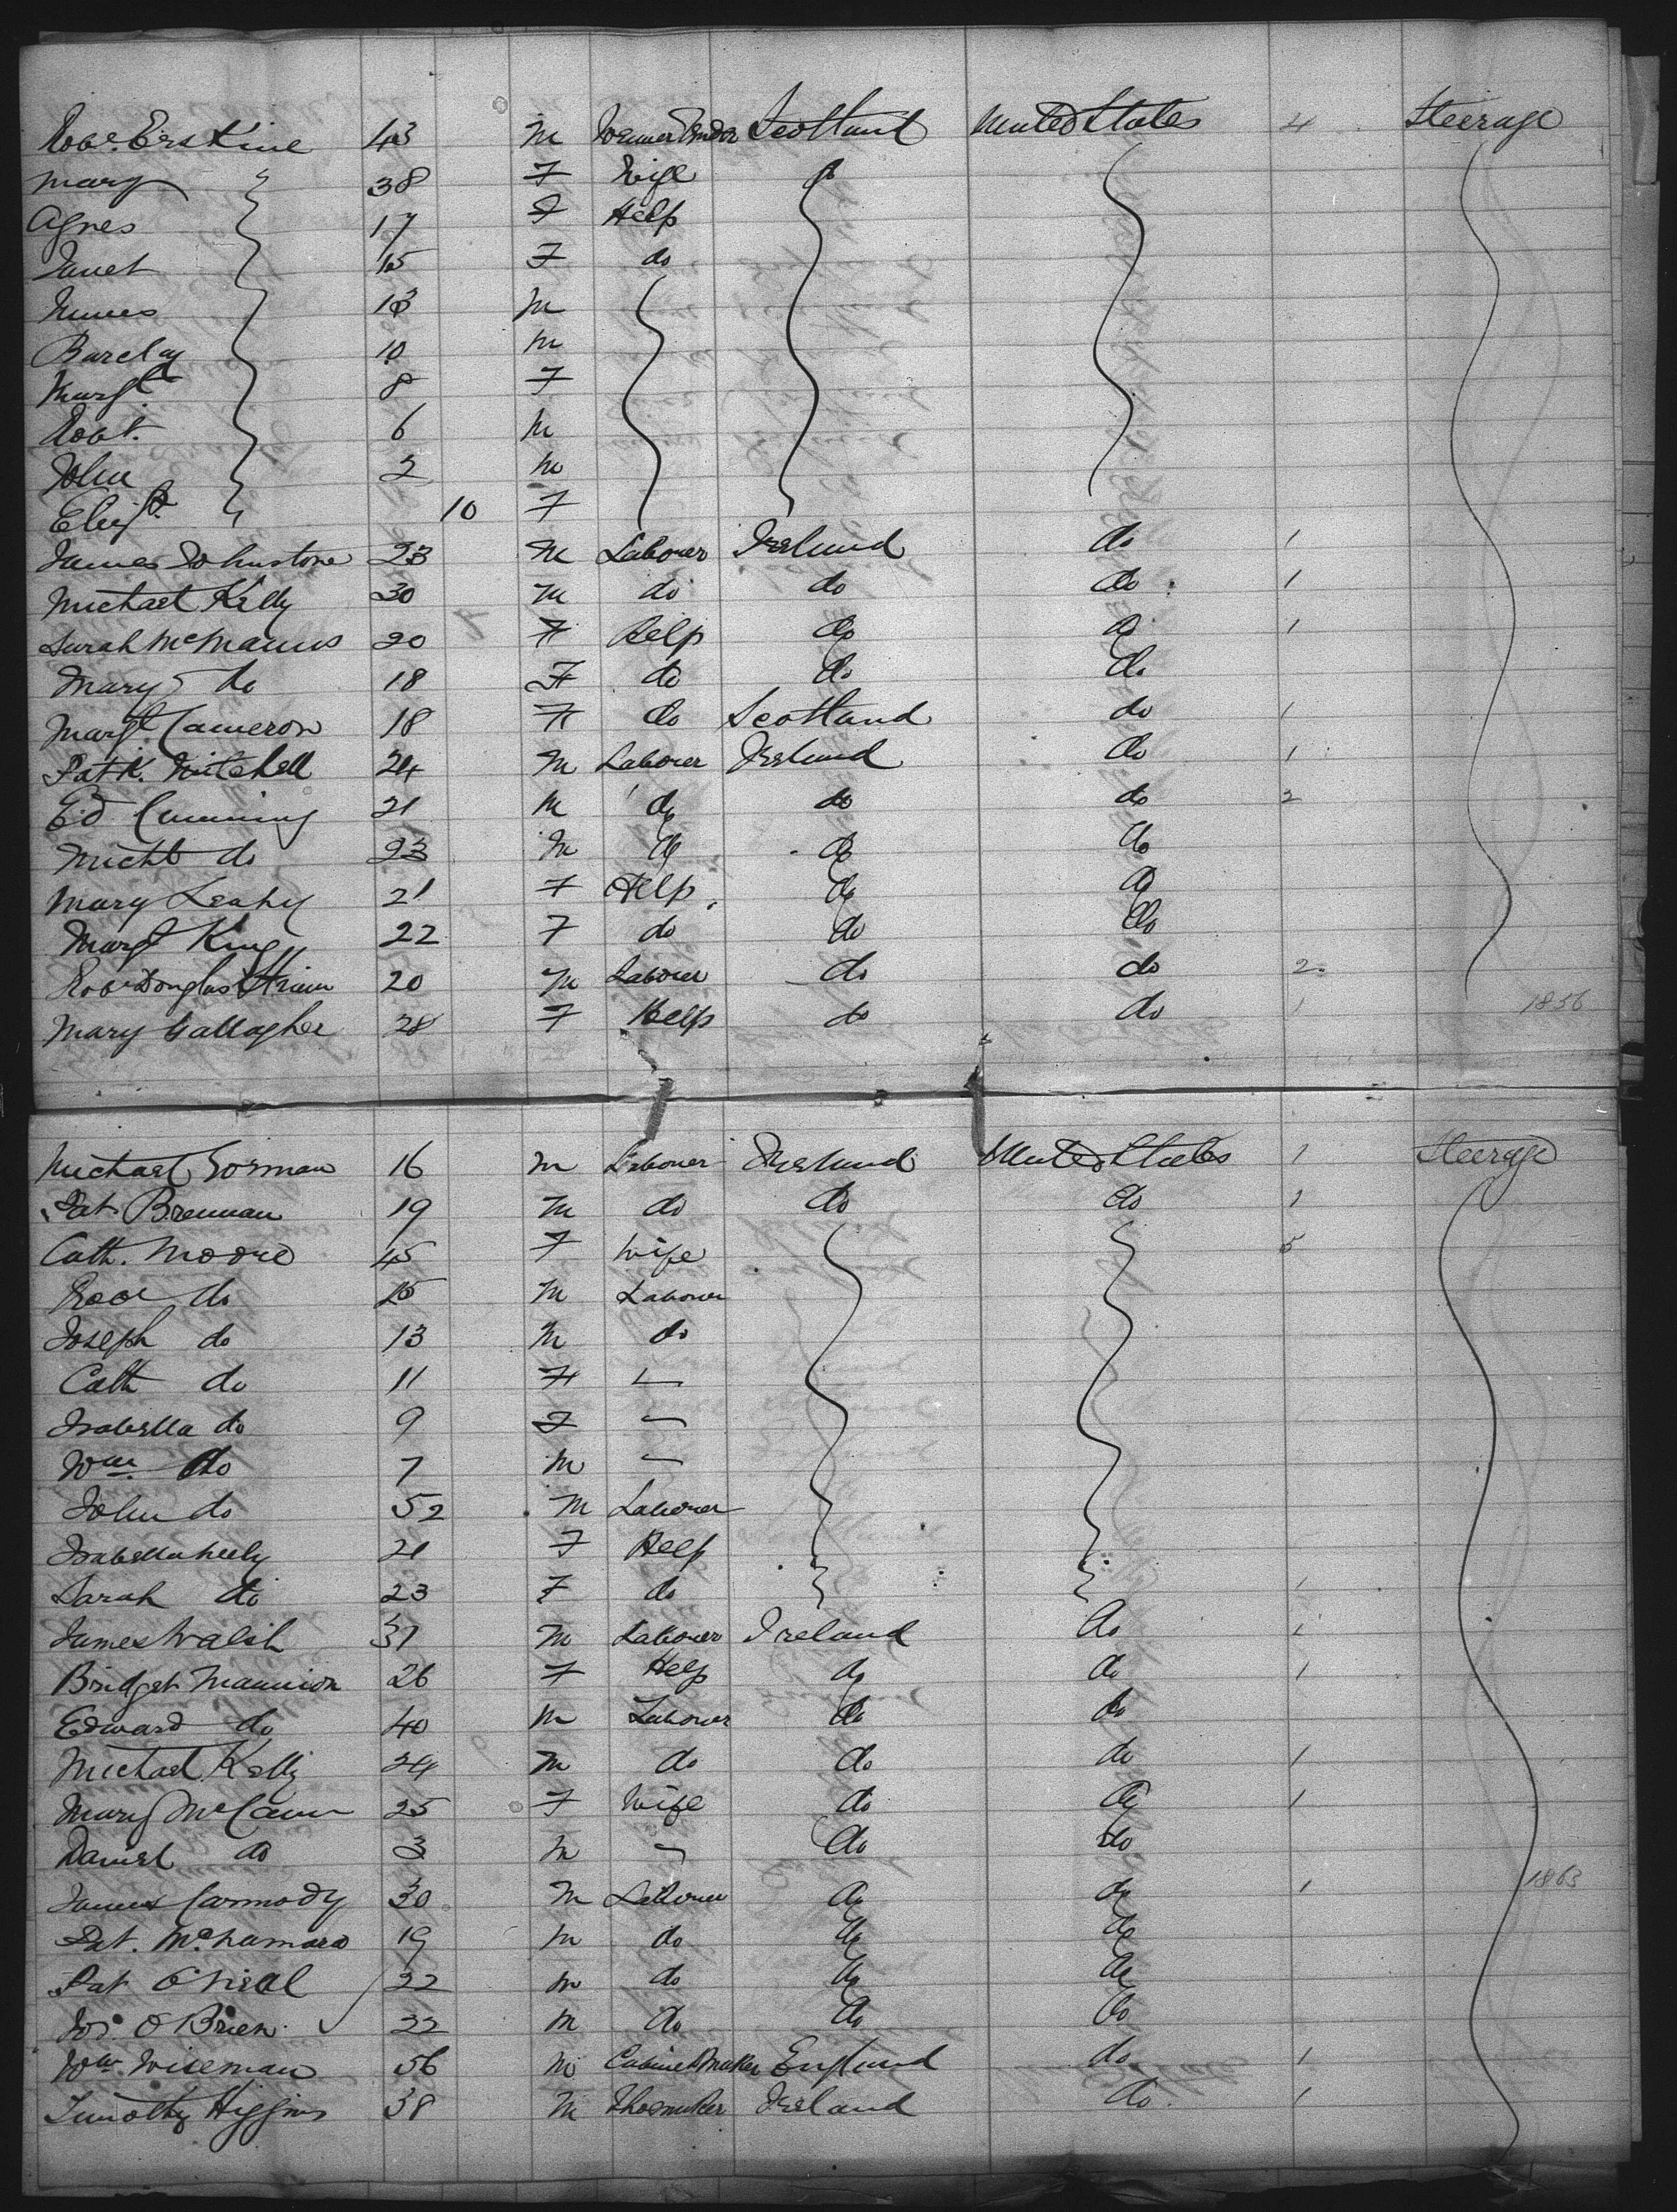 Robt. Erskine 43 M Scotland United States 4 Steerage
Mary 38 F Wife do
Agnes 17 F Help
Janet 15 F do
James 13 M
Barclay 10 M
Margt 8 F
Robt. 6 M
John 2 M
Elizth. 10 F
James Johnstone 23 M Labourer Ireland do 1
Michael Kelly 30 M do do do 1
Sarah McManus 20 F Help do do 1
Mary do 18 F do do do
Margt. Cameron 18 F do Scotland do 1
Patk. Mitchell 24 M Labourer Ireland do 1
Ed Cumming 21 M do do do 2
Michl do 23 M do do do
Mary Leahy 21 F Help do do
Margt King 22 F do do do
Robt Douglas 20 M Labourer do do 2
Mary Gallagher 28 F Help do do 1 1856
Michael Gorman 16 M Labourer Ireland United States 1 Steerage
Pat Brennan 19 M do do do 1
Cath. Moore 45 F Wife 5
Robt do 15 M Labourer
Joseph do 13 M do
Cath do 11 F —
Isabella do 9 F —
Wm. do 7 M —
John do 52 M Labourer
Isabella Neely 21 F Help
Sarah do 23 F do 1
James Walsh 37 M Labourer Ireland do 1
Bridget Mannion 26 F Help do do 1
Edward do 40 M Labourer do do
Michael Kelly 24 M do do do 1
Mary McCann 25 F Wife do do 1
Daniel do 3 M — do do
James Carmody 30 M Labourer do do 1 1863
Pat. McNamara 19 M do do do
Pat O'Neal 22 M do do do
O'Brien 22 M do do do
Wm. Wiseman 56 M Cabinet Maker England do 1
Timothy Higgins 38 M Shoemaker Ireland do 1